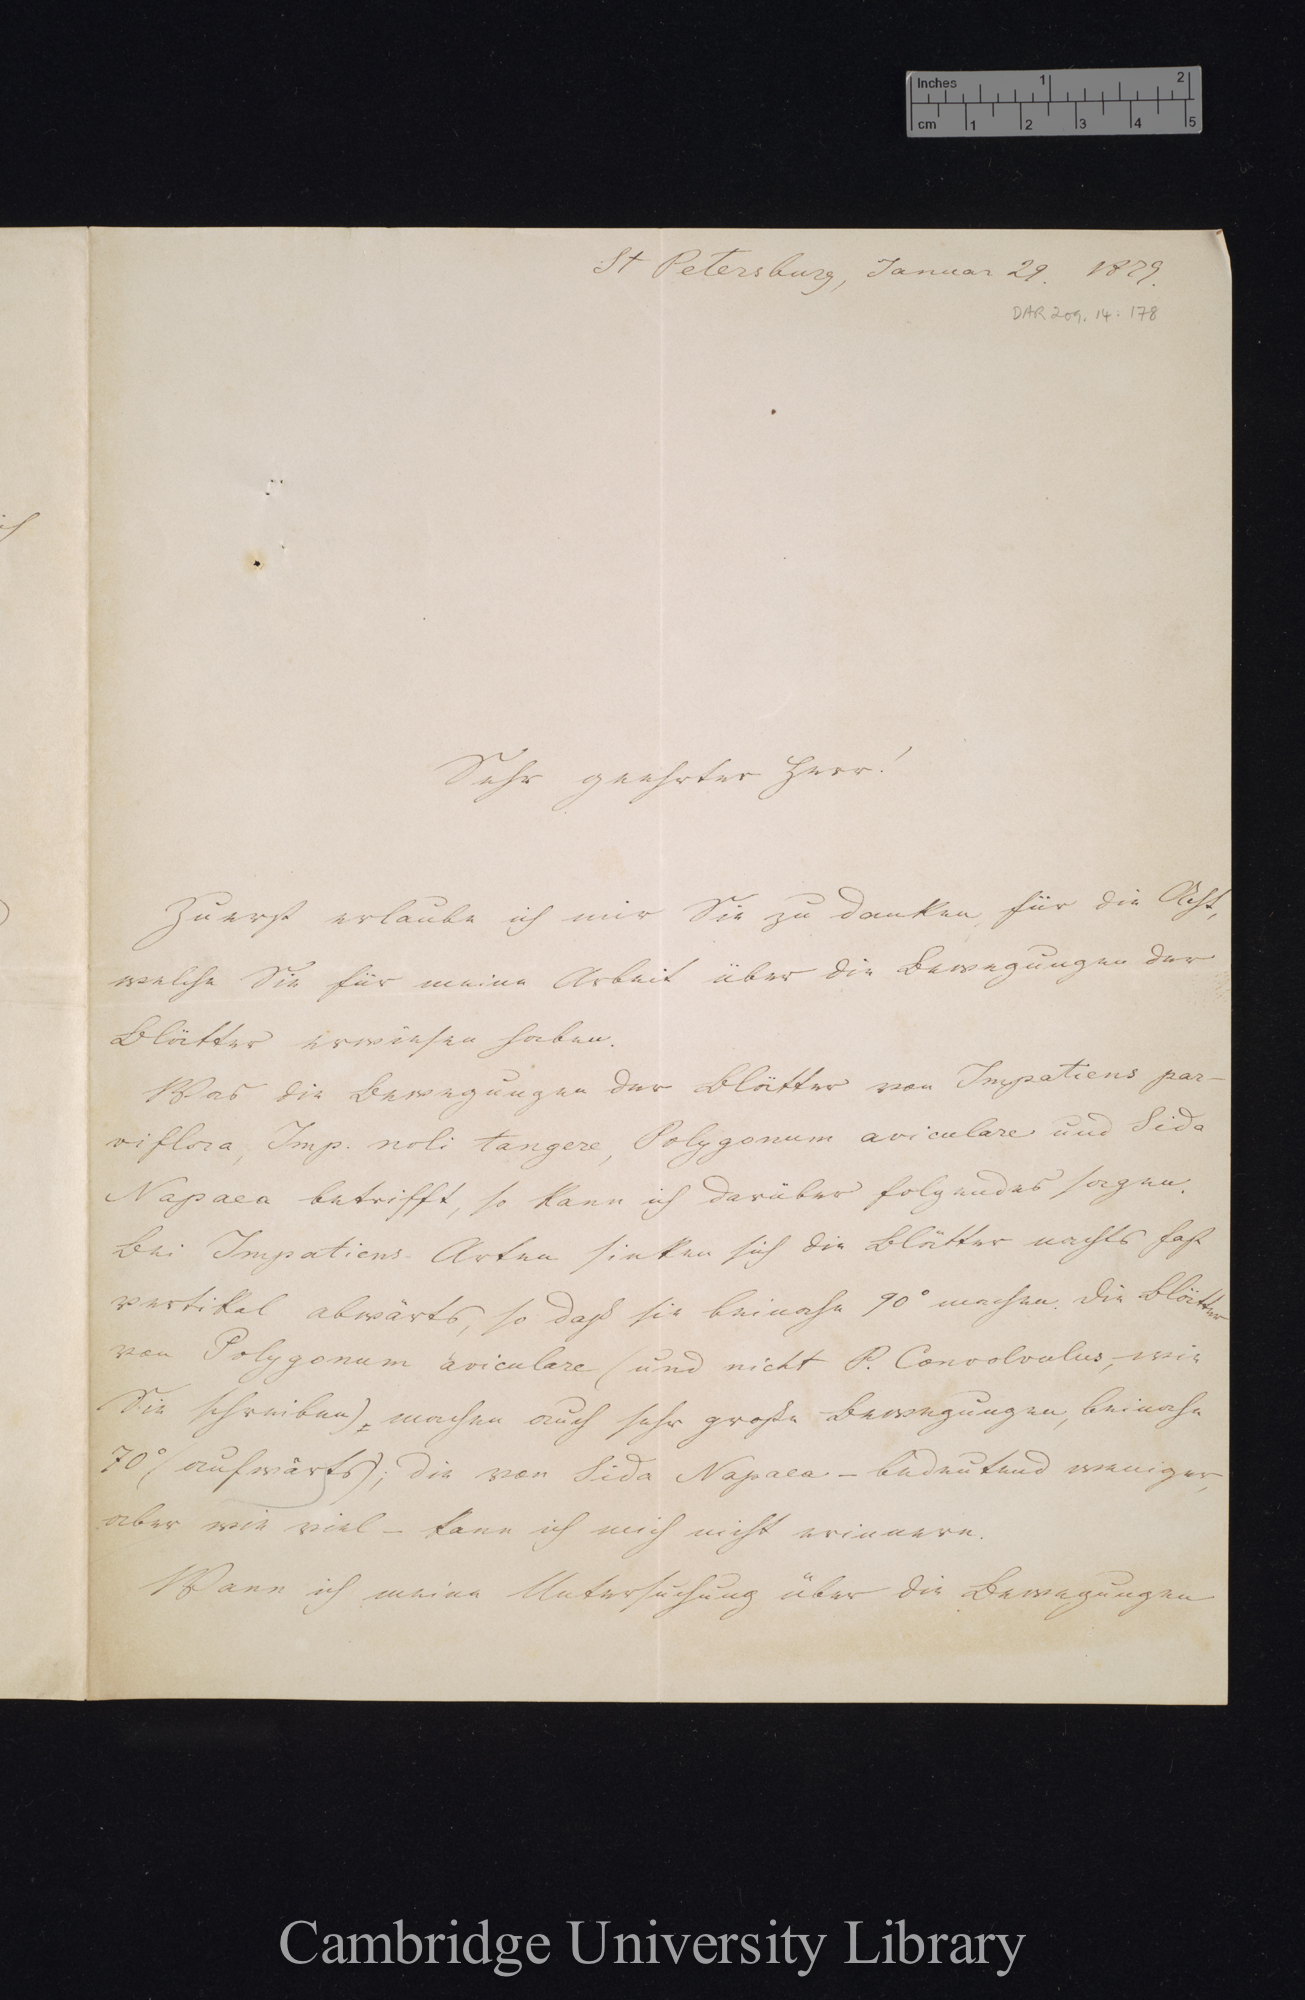 Inches 1 2
cm 1 2 3 4 5
St Petersburg, Januar 29. 1879.
DAR 209. 14: 178
Sehr geehrter Herr!
Zuerst erlaube ich mir Sie zu danken, für die Acht,
welche Sie für meine Arbeit über die Bewegungen der
Blätter erwiesen haben.
Was die Bewegungen der Blätter von Impatiens par-
viflora, Imp. noli tangere, Polygonum aviculare und Sida
Napaea betrifft, so kann ich darüber folgendes sagen.
Bei Impatiens-Arten sinken sich die Blätter nachts fast
vertikal abwärts, so daß sie beinahe 90° machen. Die Blätter
von Polygonum aviculare (und nicht P. Convolvulus, wie
Sie schreiben), machen auch sehr große Bewegungen, beinahe
70° (aufwärts); die von Sida Napaea – bedeutend weniger,
aber wie viel – kann ich mich nicht erinnern.
Wann ich meine Untersuchung über die Bewegungen
Cambridge University Library